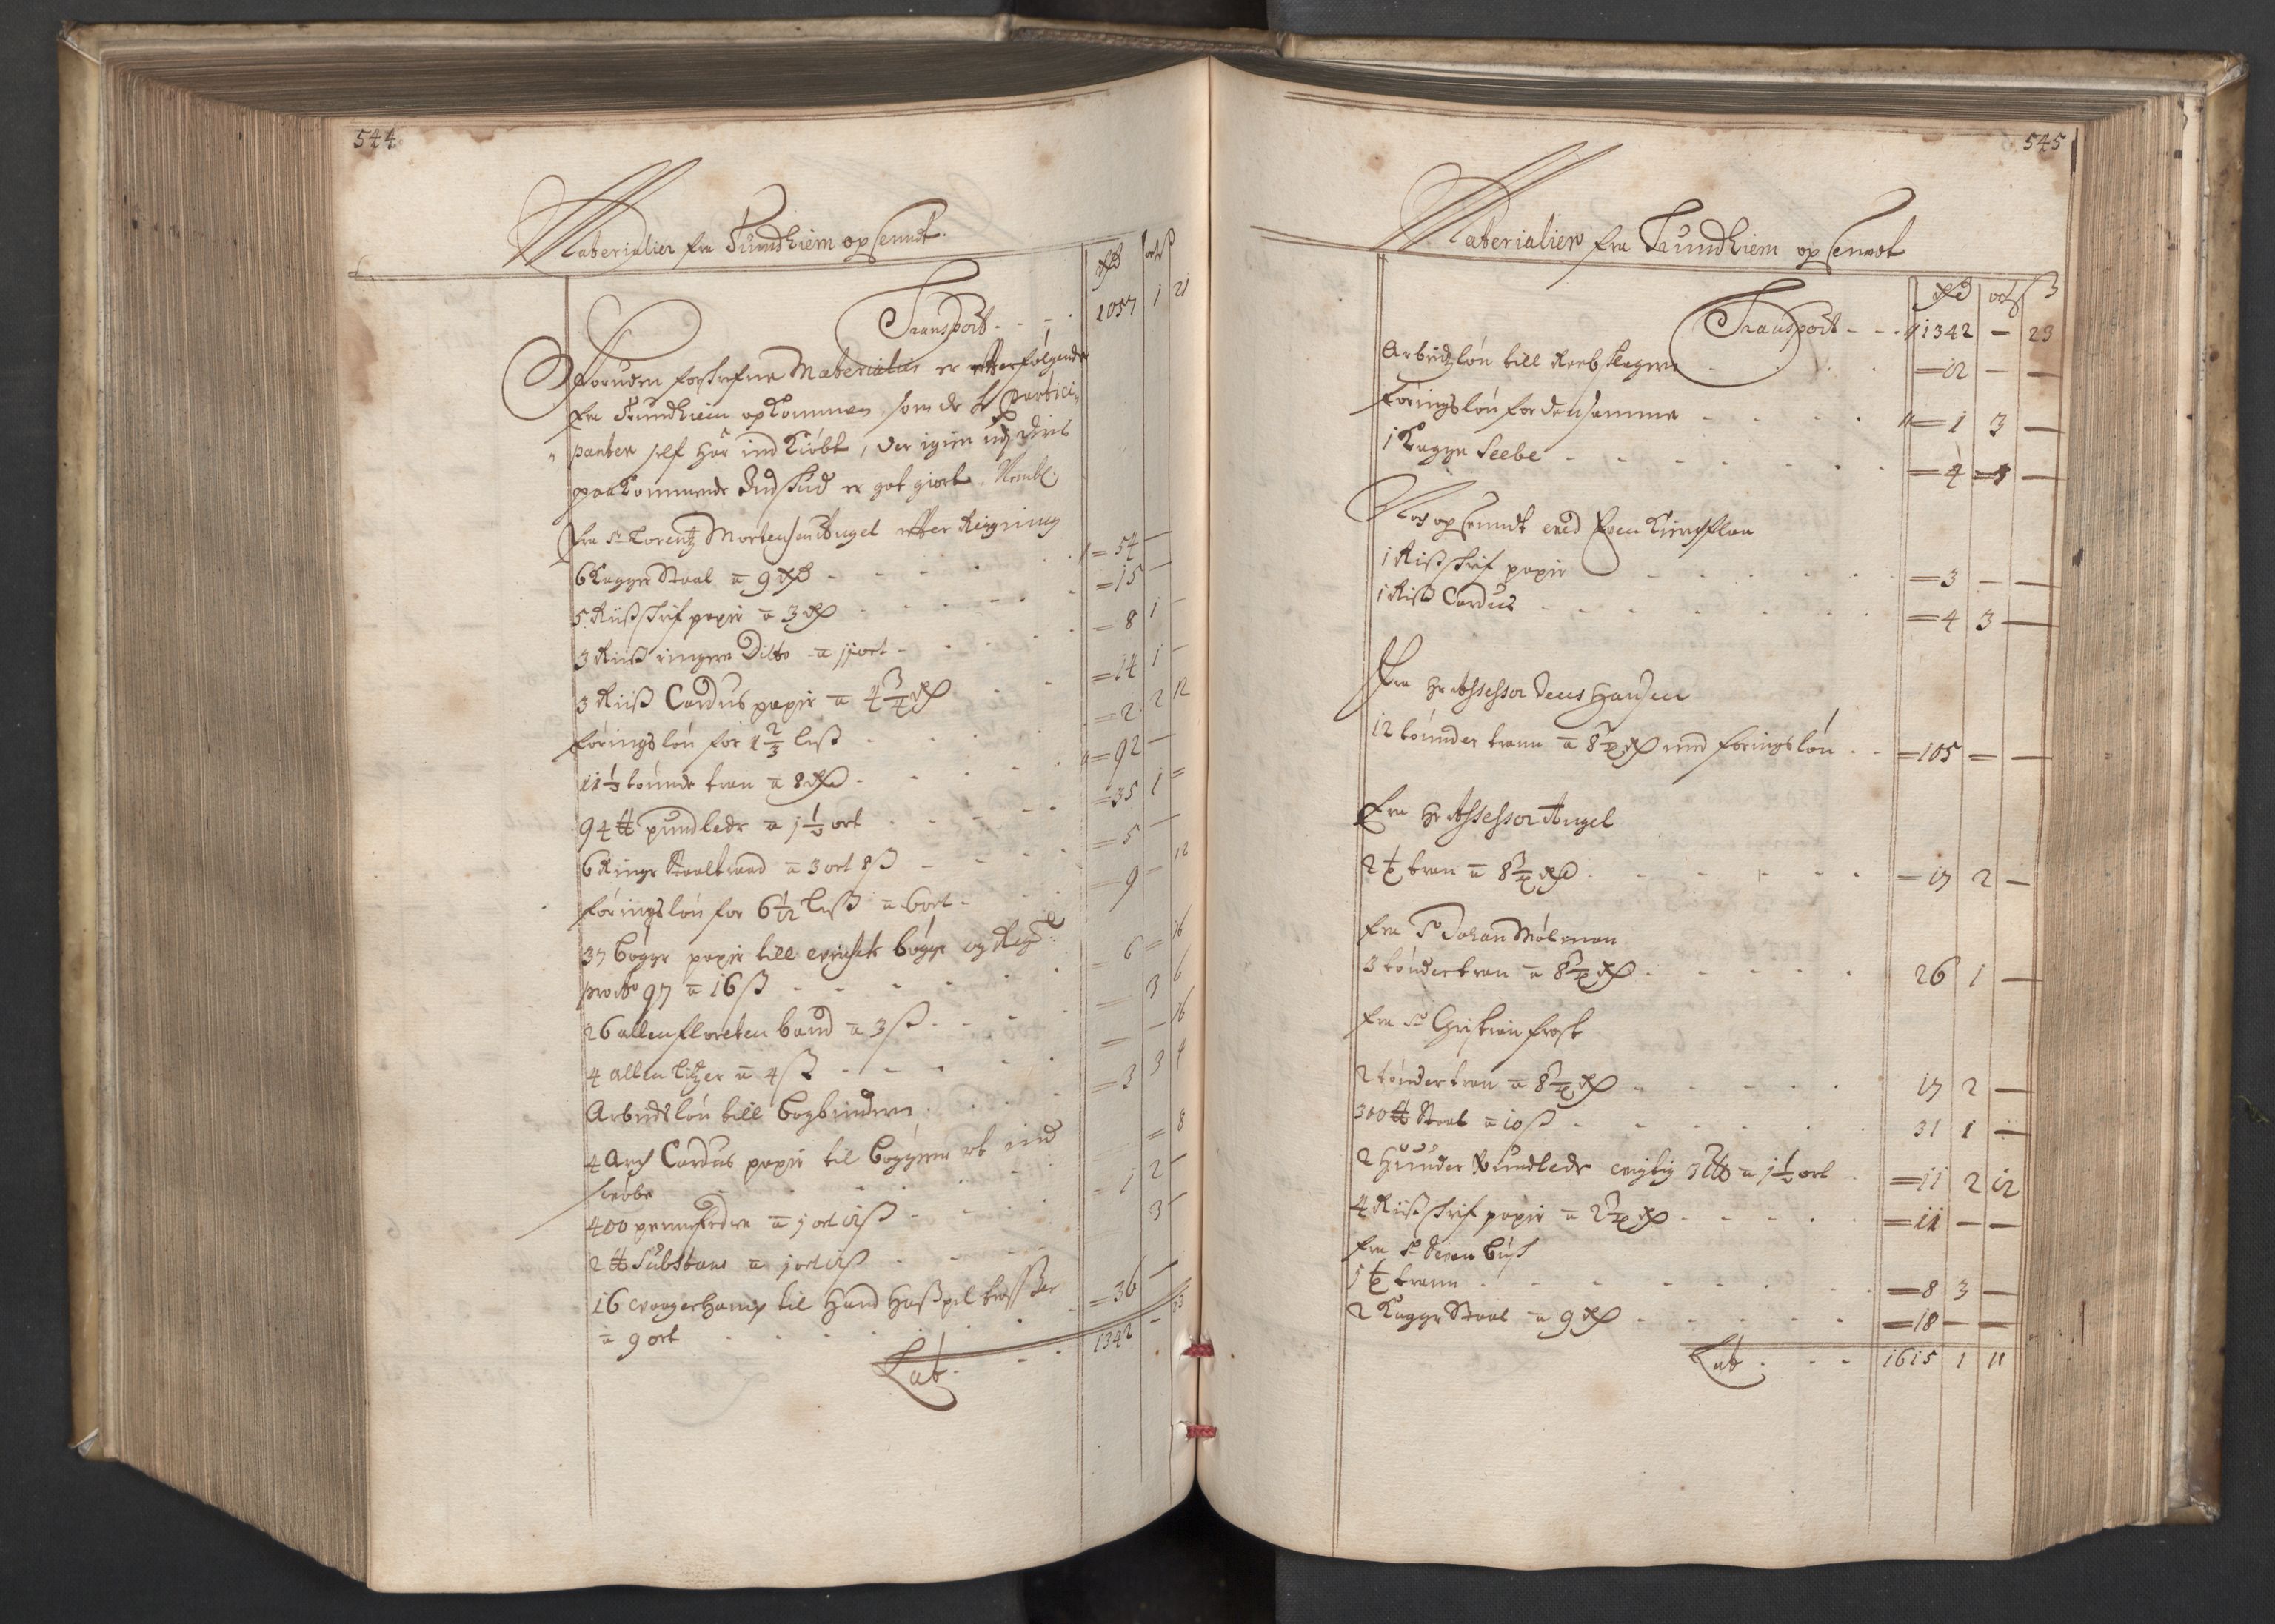 544
Materialier fra Trundhiem opsendt.
Rdr ort ß
Transport - - - 1057 1 21
Foruden forskrefne Materialier er efterfølgende
fra Trundhiem opkommen, som de H: Partici-
panter self har ind Kiøbt, der igien udj deris
paakommende Indskud er got giort. Nembl:
Fra Sr Lorentz Mortensen Angel efter Reigning
6 Kagger Staal a 9 Rdr - - - = 54 —
5 Riiß skrif papir a 3 Rd - - - = 15 —
3 Riiß ringere Ditto a 11 ort - - = 8 1 —
3 Riiß Cardus papir a 4 3/4 Rd - - = 14 1 —
føringsløn for 1 2/3 leß - - = 2 2 12
11 1/2 tønde tran a 8 Rd - - = 92 —
94 ℔ pundleder a 1 1/2 ort - - = 35 1 =
6 Ringe Staaltraad a 3 ort 8 ß - - = 5 —
føringsløn for 6 1/12 leß a 6 ort - - 9 — 12
37 bøger papir till bøger og
pro Ao 97 a 16 ß - - - = 6 = 16
26 allen floretten band a 3 ß - - — 3 6
4 allen litzer a 4 ß - - - = — 16
Arbeidsløn till bogbinderen - - = 3 3 4
4 Arch Cardus papir til bøgerne at ind
= 8
400 pennefedre a 1 ort 12 ß - - = 1 2 —
2 ℔ Substans a 1 ort 12 ß - - 3 —
16 woger hamp til Hand Haspel
a 9 ort - - - = 36 —
Lat. - - 1342 — 23
545
Materialier fra Trundhiem opsendt
Rd ort ß
Transport - - - 1342 — 23
Arbeidzløn till Reebslageren - - = 12 — —
føringsløn for densamme - - - = 1 3 —
1 Kagge Seebe - - - = 4 —
Noch opsendt med
1 Riß skrif papir - - - = 3 — —
1 Riß Cardus - - - = 4 3 —
Fra Hr Assessor Jens Hansen
12 tønder trann a 8 3/4 Rd med føringsløn - - = 105 = —
Fra Hr Assessor Angel
2 tran a 8 3/4 Rd - - - = 17 2 —
Fra Sr Johan Mølman
3 tønder tran a 8 3/4 Rd - - - 26 1 —
Fra Sr Christian Frost
2 tønder tran a 8 3/4 Rd - - - 17 2 —
300 ℔ Staal a 10 ß - - - 31 1 —
2 huuder Pundleder a 1 1/2 ort = 11 2 12
4 Riiß skrif papir a 2 3/4 Rd - - - = 11 — —
Fra Sr
1 trann - - - = 8 3 —
2 Kagge Staal a 9 Rd - - - = 18 — —
Lat - - - 1615 1 11